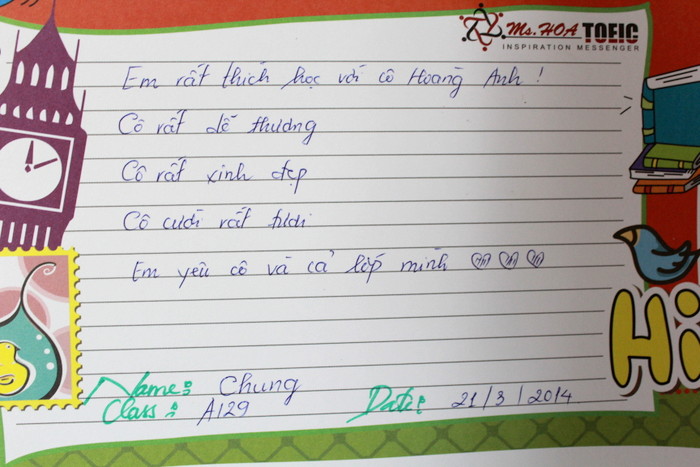 Ms. HOA TOEIC
INSPIRATION MESSENGER
Em rất thích học với cô Hoàng Anh !
Cô rất dễ thương
Cô rất xinh đẹp
Cô cười rất tươi
Em yêu cô và cả lớp mình
Hi
Name: Chung
Class: A129
Date: 21/3/2014